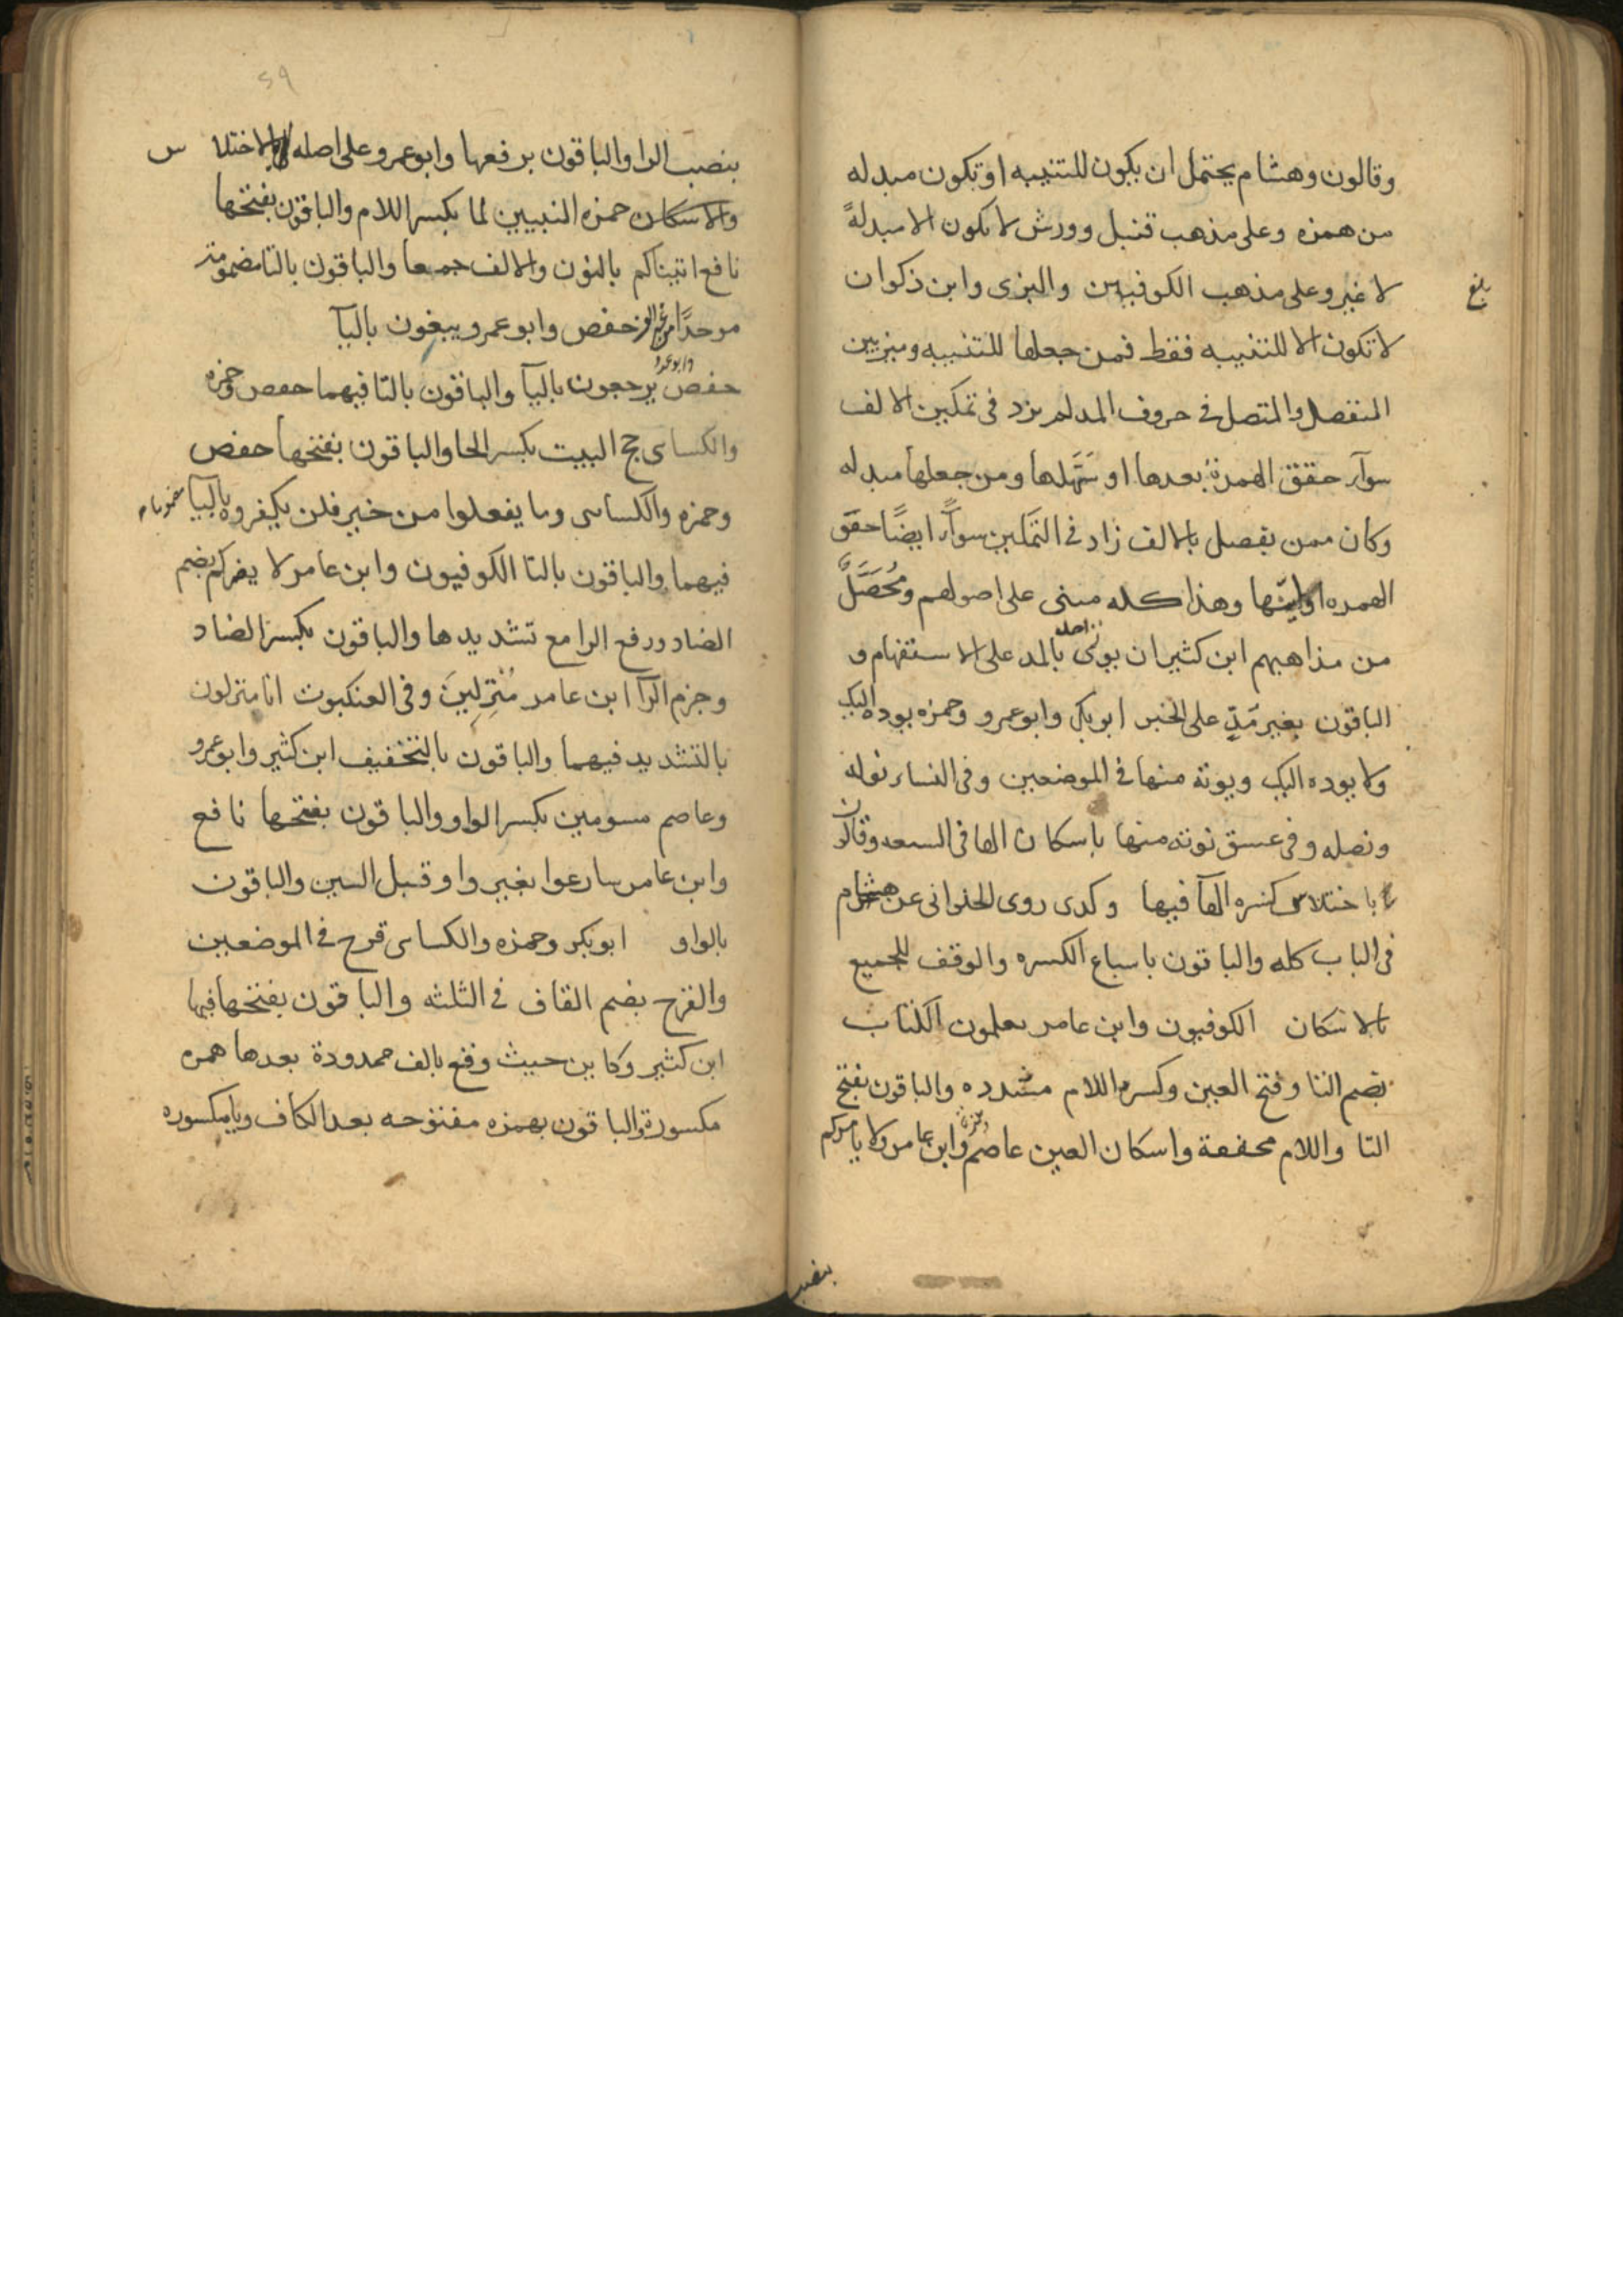 وقالون وهشام يحتمل ان يكون للتنبيه او تكون مبدله
من همزه وعلى مذهب قنبل وورش لا يكون الا مبدلةً
لا غير وعلى مذهب الكوفيين والبزى وابن ذكوان
بلغ
لا تكون الا للتنبيه فقط فمن جعلها للتنبيه وميز بين
المنفصل والمتصل في حروف المد لم يزد فى تمكين الالف
سوآء حقق الهمزة بعدها او سَهَّلها ومن جعلها مبدله
وكان ممن يفصل بالالف زاد في التمكين سوآءً ايضًا حقق
الهمزه او ليّنها وهذا كله مبنى على اصولهم ومُحَصَّلٌ
من مذاهبهم ابن كثير ان يوتى احد بالمد على الاستفهام و
الباقون بغير مَدٍّ على الخبر ابو بكر وابو عمرو وحمزه يوده اليك
ولا يوده اليك ويوته منها في الموضعين وفى النساء نوله
ونصله وفى عسق نوته منها باسكان الها فى السبعه وقالون
باختلاس كسره الهآ فيها وكدى روى الحلوانى عن هشام
فى الباب كله والباقون باسباع الكسره والوقف للجميع
بالاسكان الكوفيون وابن عامر تعلمون الكتاب
بضم التا وفتح العين وكسر اللام مشدده والباقون بفتح
التا واللام مخففة واسكان العين عاصم وحمزة وابن عامر ولا يامركم
بنصب
٢٩
بنصب الرا والباقون برفعها وابو عمرو على اصله بالاختلاس
والاسكان حمزه النبيين لما بكسر اللام والباقون بفتحها
نافع اتيناكم بالنون والالف جمعا والباقون بالتا مضمومة
موحدًا من غير الف حفص وابو عمرو يبغون باليآ
حفص يرجعون باليآ والباقون بالتا فيهما حفص وحمزه
وابو عمرو
والكساى حج البيت بكسر الحا والباقون بفتحها حفص
وحمزه والكساى وما يفعلوا من خير فلن يكفروه باليآ
فيهما والباقون بالتا الكوفيون وابن عامر لا يضركم بضم
الضاد ورفع الرا مع تشديدها والباقون بكسر الضاد
وجزم الرآ ابن عامر مُنَزَّلِينَ وفى العنكبوت انا منزلون
بالتشديد فيهما والباقون بالتخفيف ابن كثير وابو عمرو
وعاصم مسومين بكسر الواو والباقون بفتحها نافع
وابن عامر سارعوا بغير واو قبل السين والباقون
بالواو ابو بكر وحمزه والكساى قرح في الموضعين
والقرح بضم القاف في الثلثه والباقون بفتحها فيها
ابن كثير وكاين حيث وقع بالف ممدودة بعدها همزه
مكسورة والباقون بهمزه مفتوحه بعد الكاف ويا مكسوره